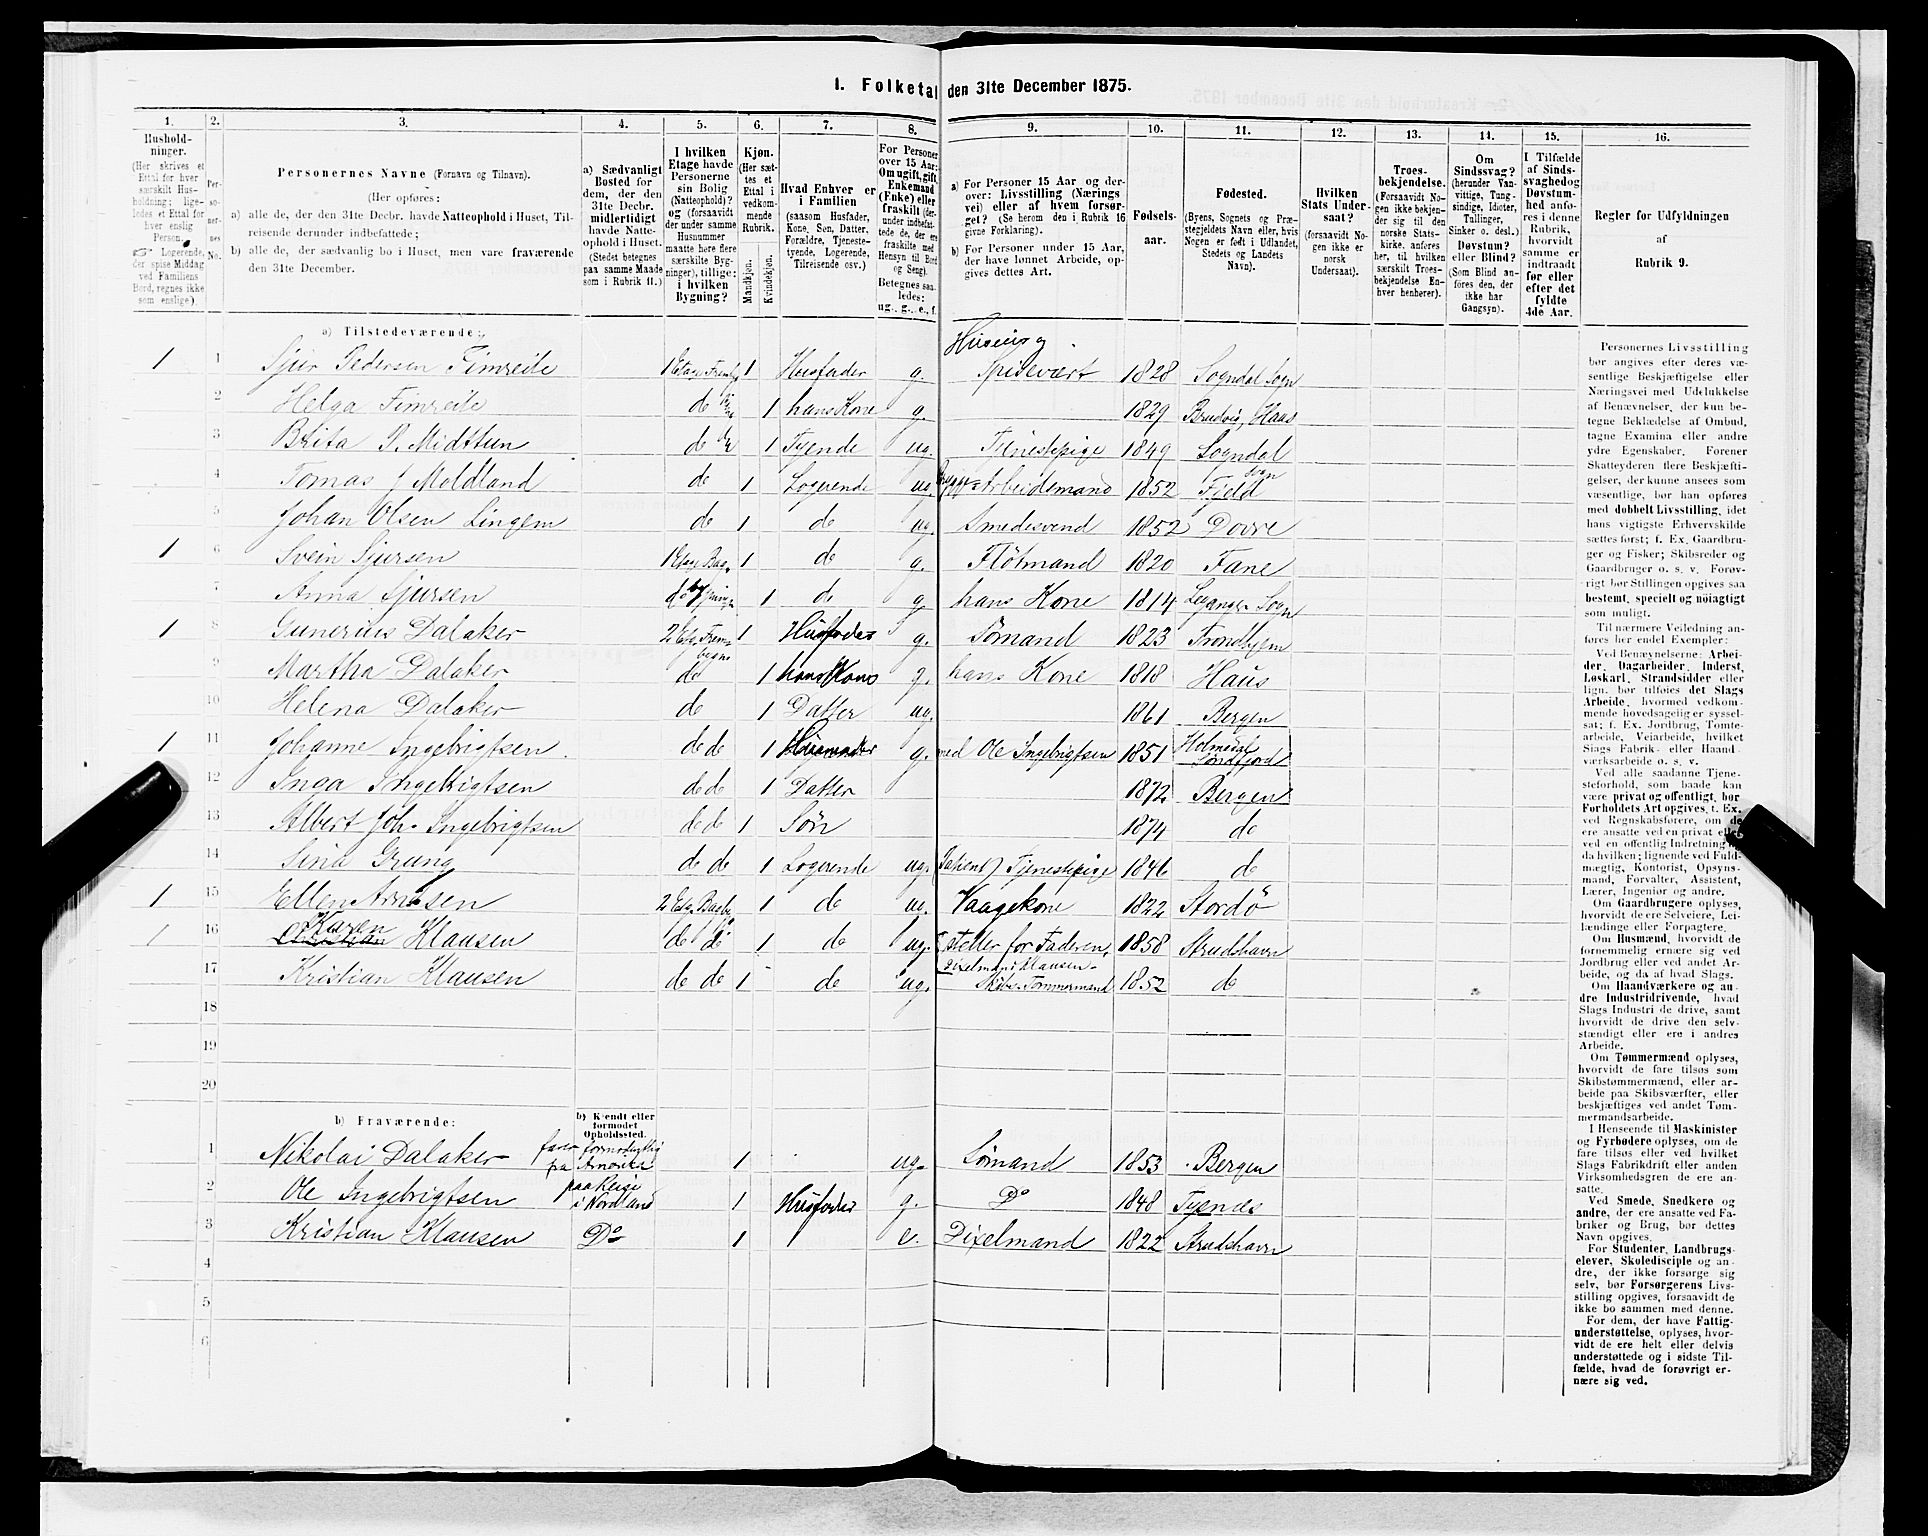 1. Folketal den 31te December 1875.
1. 2. 3. 4. 5. 6. 7. 8. 9. 10. 11. 12. 13. 14. 15. 16.
Husholdninger.
(Her skrives et
Ettal for hver
særskilt Hus-
holdning; lige-
ledes et Ettal for
hver enslig
Person.
Logerende,
der spise Middag
ved Familiens
Bord, regnes ikke
som enslige).
Personernes No.
Personernes Navne (Fornavn og Tilnavn).
(Her opføres:
a) alle de, der den 31te Decbr. havde Natteophold i Huset, Til-
reisende derunder indbefattede;
b) alle de, der sædvanlig bo i Huset, men vare fraværende
den 31te December.
a) Sædvanligt
Bosted for
dem, der den
31te Decbr.
midlertidigt
havde Natte-
ophold i Huset.
(Stedet betegnes
paa samme Maade
som i Rubrik 11.)
I hvilken
Etage havde
Personerne
sin Bolig
(Natteophold)?
og (forsaavidt
der under samme
Husnummer
maatte høre flere
særskilte Byg-
ninger), tillige:
i hvilken
Bygning?
Kjøn.
(Her sæt-
tes et
Ettal i
vedkom-
mende
Rubrik.
Mandkjøn.
Kvindekjøn.
Hvad Enhver er
i Familien
(saasom Husfader,
Kone, Søn, Datter,
Forældre, Tjeneste-
tyende, Logerende,
Tilreisende osv.)
For Personer
over 15 Aar:
Om ugift, gift,
Enkemand
(Enke) eller
fraskilt (der-
under indbefat-
tede de, der ere
fraskilte med
Hensyn til Bord
og Seng).
Betegnes saa-
ledes:
ug., g., e., f.
a) For Personer 15 Aar og der-
over: Livsstilling (Nærings
vei) eller af hvem forsør-
get? (Se herom den i Rubrik 16
givne Forklaring).
b) For Personer under 15 Aar,
der have lønnet Arbeide, op-
gives dettes Art.
Fødsels-
aar.
Fødested.
(Byens, Sognets og Præ-
stegjeldets Navn eller, hvis
Nogen er født i Udlandet,
Stedets og Landets
Navn).
Hvilken
Stats Under-
saat?
(forsaavidt No-
gen ikke er
norsk
Undersaat).
Troes-
bekjendelse.
(Forsaavidt No-
gen ikke bekjen-
der sig til den
norske Stats-
kirke, anføres
her, til hvilken
særskilt Troes-
bekjendelse En-
hver henhører).
Om
Sindssvag?
(herunder Van-
vittige, Tung-
sindige, Idioter,
Tullinger,
Sinker o. desl.)
Døvstum?
eller Blind?
(Som Blind an-
føres den, der
ikke har
Gangsyn).
I Tilfælde
af Sinds-
svaghed og
Døvstum-
hed anfø-
res i denne
Rubrik,
hvorvidt
samme er
indtraadt
før eller
efter det
fyldte
4de Aar.
Regler for Udfyldningen
af
Rubrik 9.
a) Tilstedeværende:
1 1 Sjur Pedersen Fimreite 1 Etage 1 Husfader g. Spisevært 1828 Sogndal Sogn
2 Helga Fimreite do 1 hans Kone g. 1829 Haus
3 Brita P. Midttun do 1 Tyende ug. Tjenestepige 1849 Sogndal Sogn
4 Tomas J Moldland do 1 Logerende ug. Arbeidsmand 1852 Fjeld
5 Johan Olsen Lingem do 1 do ug. Smedesvend 1852 Dovre
1 6 Svein Sjursen 1 Etage 1 do g. Flötmand 1820 Fane
7 Anna Sjursen do 1 do g. hans Kone 1814 Sogn
1 8 Gunerius Dalaker 2 1 Husfader g. Sømand 1823 Trondhjem
9 Martha Dalaker do 1 hans Kone g. hans Kone 1818 Haus
10 Helena Dalaker do 1 Datter ug. 1861 Bergen
1 11 Johanne Ingebrigtsen do do 1 g. med Ole Ingebrigtsen 1851 Holmedal Söndfjord
12 Inga Ingebrigtsen do do 1 Datter 1872 Bergen
13 Albert Joh. Ingebrigtsen do do 1 Sön 1874 do
14 Sina Grung do do 1 Logerende ug. Tjenestepige 1846 do
1 15 Ellen Arnesen 2 1 do ug. Vaagekone 1822 Stordö
1 16 Karen Klausen do do 1 do ug. steller for Faderen, 1858 Strudshavn
Dixelmand Klausen
17 Kristian Klausen do do 1 do ug. Skibs Tømmermand 1852 do
18
19
20
b) Fraværende:
b) Kjendt eller
formodet
Opholdssted.
1 Nikolai Dalaker farer formodentlig paa Amerika 1 ug. Sömand 1853 Bergen
2 Ole Ingebrigtsen paa Reise i Nordland 1 Husfader g. Do 1848 Tysnes
3 Kristian Klausen Do 1 e. Dixelmand 1822 Strudshavn
4
5
6
Personernes Livsstilling
bør angives efter deres væ-
sentlige Beskjæftigelse eller
Næringsvei med Udelukkelse
af Benævnelser, der kun be-
tegne Beklædelse af Ombud,
tagne Examina eller andre
ydre Egenskaber. Forener
Skatteyderen flere Beskjæfti-
gelser, der kunne ansees som
væsentlige, bør han opføres
med dobbelt Livsstilling, idet
hans vigtigste Erhvervskilde
sættes først; f. Ex. Gaardbru-
ger og Fisker; Skibsreder og
Gaardbruger o. s. v. Forøv-
rigt bør Stillingen opgives saa
bestemt, specielt og nöiagtigt
som muligt.
Til nærmere Veiledning an-
føres her endel Exempler:
Ved Benævnelserne: Arbei-
der, Dagarbeider, Inderst,
Løskarl, Strandsidder eller
lign. bør tilføies det Slags
Arbeide, hvormed vedkom-
mende hovedsagelig er syssel-
sat; f. Ex. Jordbrug, Tomte-
arbeide, Veiarbeide, hvilket
Slags Fabrik- eller Haand-
værksarbeide o. s. v.
Ved alle saadanne Tjene-
steforhold, som baade kan
være privat og offentligt, bør
Forholdets Art opgives, t. Ex.
ved Regnskabsførere, om de
ere ansatte ved en privat eller
ved en offentlig Indretning
da hvilken; lignende ved Fuld-
mægtig, Kontorist, Opsyns-
mand, Forvalter, Assistent,
Lærer, Ingeniør og andre.
Om Gaardbrugere oplyses,
hvorvidt de ere Selveiere, Lei-
lændinge eller Forpagtere.
Om Husmænd, hvorvidt de
fornemmelig ernære sig ved
Jordbrug eller ved andet Ar-
beide, og da af hvad Slags.
Om Haandværkere og an-
dre Industridrivende, hvad
Slags Industri de drive, samt
hvorvidt de drive den selv-
stændigt eller ere i andres
Arbeide.
Om Tømmermænd oplyses,
hvorvidt de fare tilsøs som
Skibstømmermænd, eller ar-
beide paa Skibsværfter, eller
beskjæftiges ved andet Tøm-
mermandsarbeide.
I Henseende til Maskinister
og Fyrbødere oplyses, om de
fare tilsøs eller ved hvilket
Slags Fabrikdrift eller anden
Virksomhedsgren de ere an-
satte.
Ved Smede, Snedkere og
andre, der ere ansatte ved Fa-
briker og Brug, bør dettes
Navn opgives.
For Studenter, Landbrugs-
elever, Skoledisciple og an-
dre, der ikke forsørge sig
selv, bør Forsørgerens Livs-
stilling opgives, forsaavidt de
ikke bo sammen med denne.
For dem, der have Fattig-
understøttelse, oplyses, hvor-
vidt de ere helt eller delvis
understøttede og i sidste Til-
fælde, hvad de forøvrigt er-
nære sig ved.